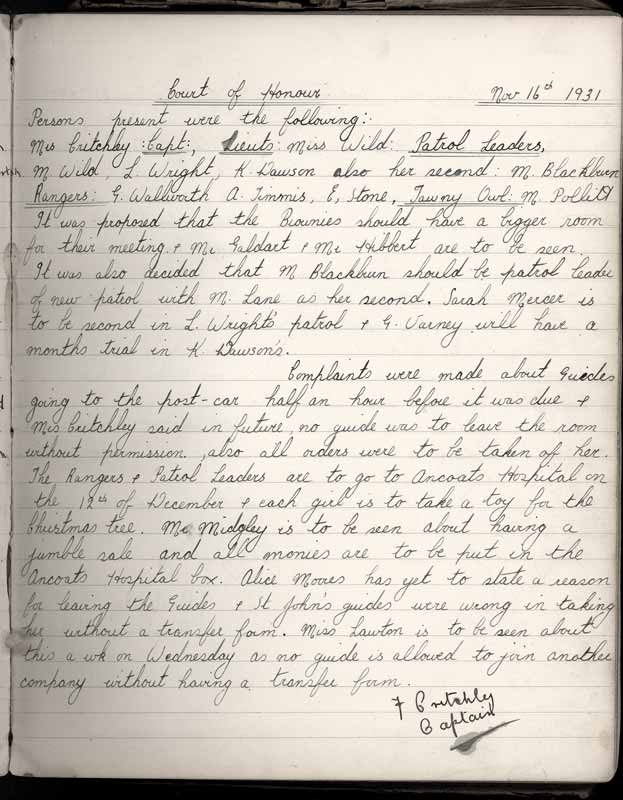 Court of Honour Nov 16th 1931
Persons present were the following:-
Mrs Critchley :Capt:, Lieuts: Miss Wild: Patrol Leaders,
M. Wild, L. Wright, K. Dawson also her second: M. Blackburn
Rangers: G. Wallworth A. Timmis, E, Stone, Tawny Owl: M. Pollitt
It was proposed that the Brownies should have a bigger room
for their meeting & Mr Galdart & Mr Hibbert are to be seen
It was also decided that M Blackburn should be patrol leader
of new patrol with M. Lane as her second. Sarah Mercer is
to be second in L. Wright's patrol & G. Varney will have a
months trial in K. Dawson's.
Complaints were made about Guides
going to the post-car half an hour before it was due &
Mrs Critchley said in future, no guide was to leave the room
without permission, also all orders were to be taken of her.
The Rangers & Patrol Leaders are to go to Ancoats Hospital on
the 12th of December & each girl is to take a toy for the
Christmas tree. Mr. Midgley is to be seen about having a
jumble sale and all monies are to be put in the
Ancoats Hospital box. Alice Moores has yet to state a reason
for leaving the Guides & St John's guides were wrong in taking
her without a transfer form. Miss Lawton is to be seen about
this a wk on Wednesday as no guide is allowed to join another
company without having a transfer form.
F Critchley
Captain